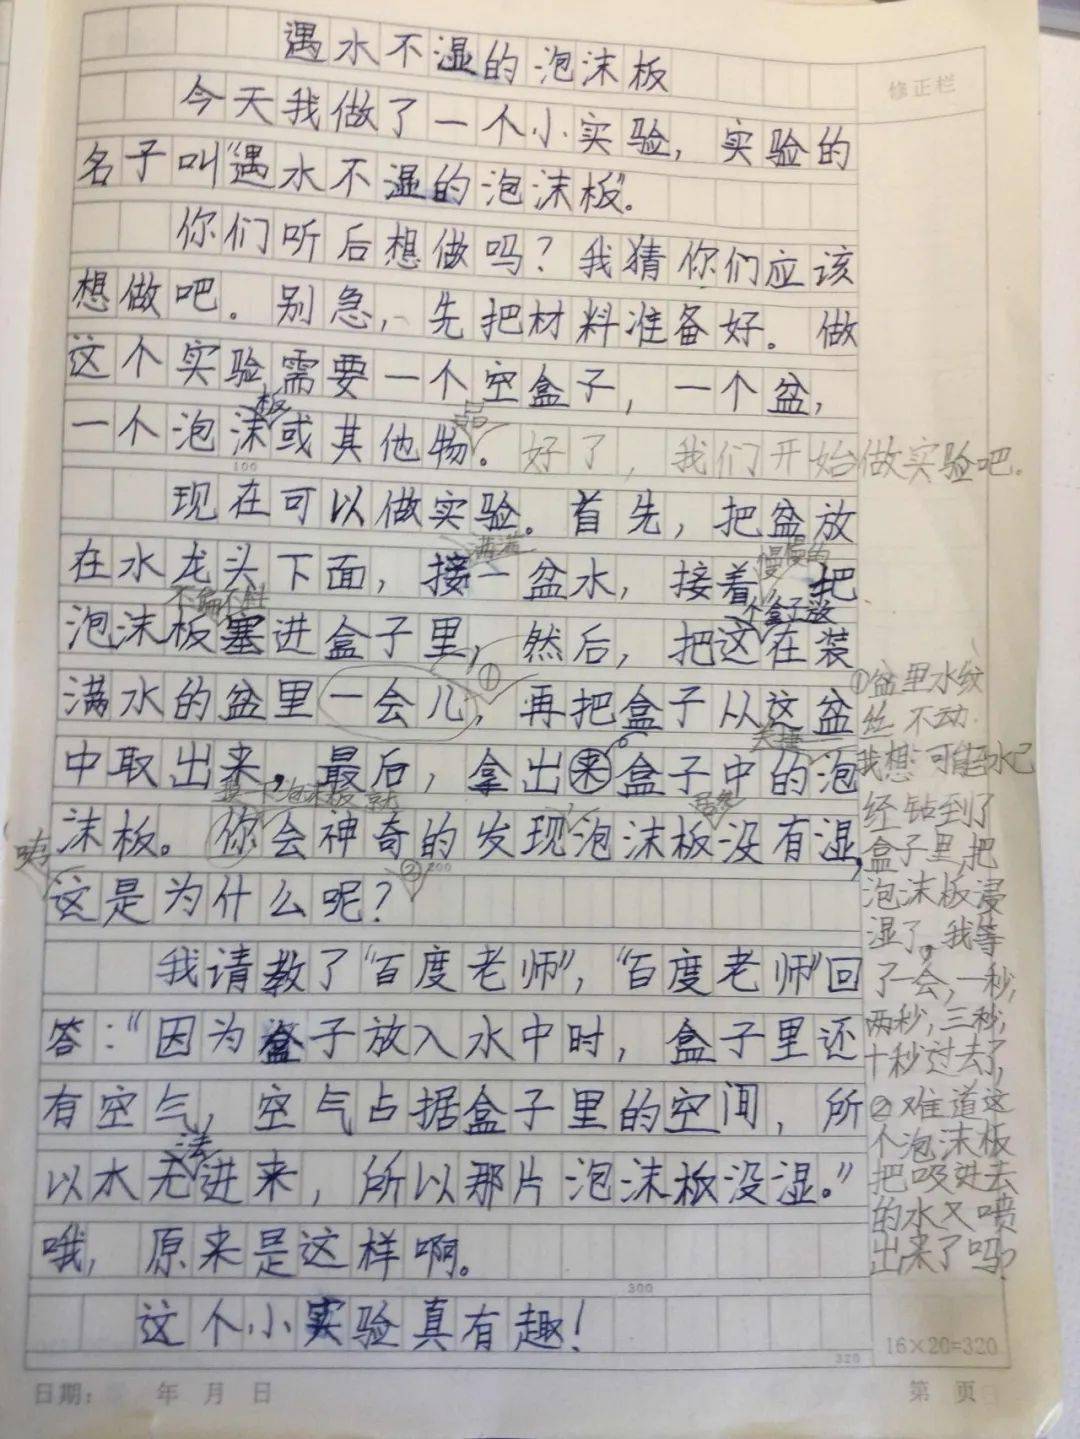 遇水不湿的泡沫板
修正栏
今天我做了一个小实验，实验的
名子叫“遇水不湿的泡沫板”。
你们听后想做吗？我猜你们应该
想做吧。别急，先把材料准备好。做
这个实验需要一个空盒子，一个盆，
板
品
一个泡沫或其他物。好了，我们开始做实验吧。
100
现在可以做实验。首先，把盆放
满满
慢慢的
在水龙头下面，接一盆水，接着，把
不偏不斜
个盒子放
泡沫板塞进盒子里，然后，把这在装
满水的盆里一会儿，①再把盒子从这盆
中取出来，最后，拿出来盒子中的泡
泡沫板就
居然
沫板。你会神奇的发现泡沫板没有湿，
咦
② 200
这是为什么呢？
我请教了“百度老师”，“百度老师”回
答：“因为盒子放入水中时，盒子里还
有空气，空气占据盒子里的空间，所
法
以水无进来，所以那片泡沫板没湿。”
哦，原来是这样啊。
300
这个小实验真有趣！
320
①盆里水纹
丝不动.
我想：可能水已
经钻到了
盒子里,把
泡沫板浸
湿了，我等
了一会,一秒,
两秒,三秒,
十秒过去了,
②难道这
个泡沫板
把吸进去
的水又喷
出来了吗？
16×20=320
日期： 年 月 日
第 页